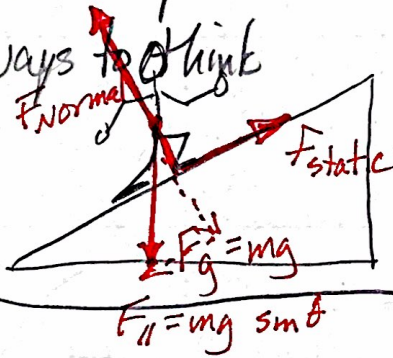 ways to think
F Normal
F static
Fg = mg
F// = mg sin θ